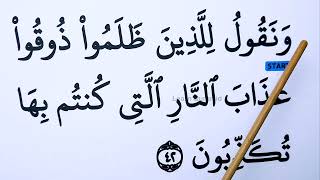 وَنَقُولُ لِلَّذِينَ ظَلَمُوا۟ ذُوقُوا۟
START
عَذَابَ ٱلنَّارِ ٱلَّتِى كُنتُم بِهَا
تُكَذِّبُونَ ٤٢